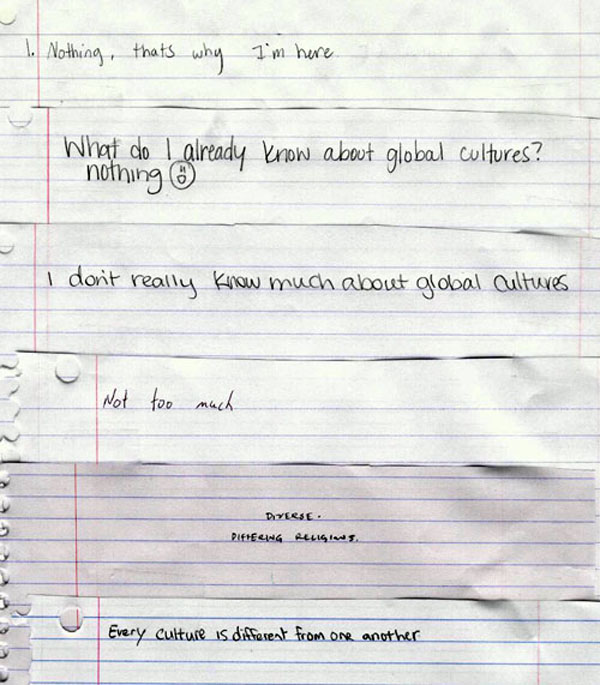 1. Nothing, thats why I'm here
What do I already know about global cultures?
nothing
I don't really know much about global cultures
Not too much
DIVERSE.
DIFFERING RELIGIONS.
Every culture is different from one another